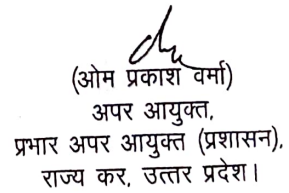 (ओम प्रकाश वर्मा)
अपर आयुक्त,
प्रभार अपर आयुक्त (प्रशासन),
राज्य कर, उत्तर प्रदेश।